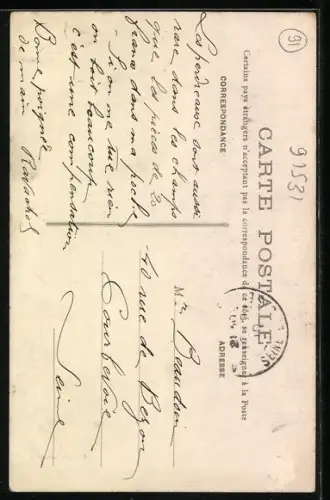 CARTE POSTALE
Certains pays étrangers n'acceptant pas la correspondance de ce côté, se renseigner à la Poste
CORRESPONDANCE
ADRESSE
91
91531
Les perdreaux sont aussi
rare dans les champs
que les pièces de 20
francs dans ma poche
Si on ne tue rien
on boit beaucoup
c'est une compensation
Bonne poignée
de main
Mr Beaudoin
40 rue de Bezons
Courbevoie
Seine